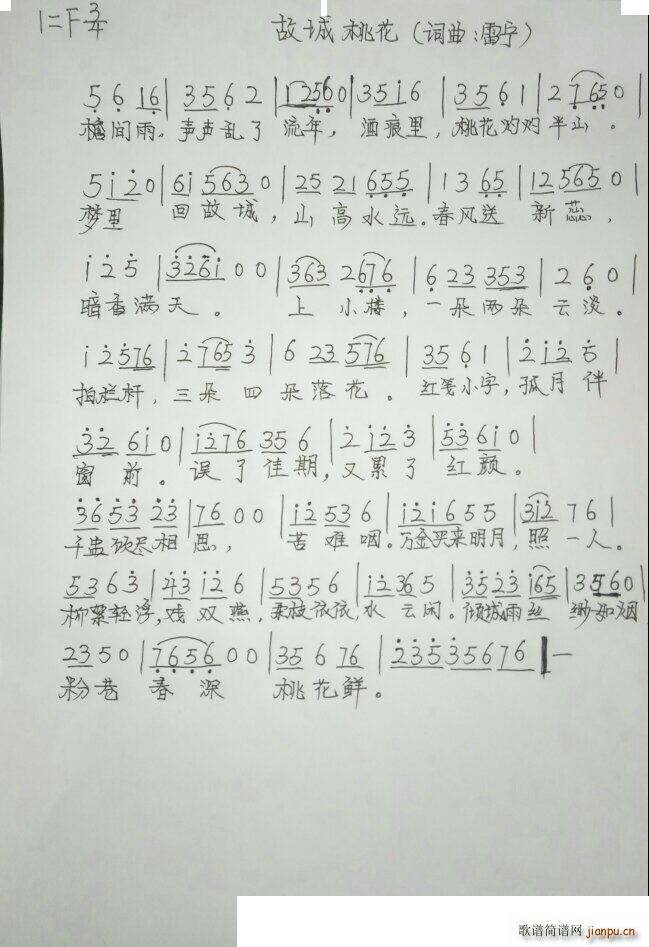 1=F 3/4 故城桃花（词曲:雷宁）
5 6 1 6 | 3 5 6 2 | 1 2 5 6 0 | 3 5 i 6 | 3 5 6 1 | 2 7 6 5 0
檐间雨。声声乱了 流年，酒痕里，桃花灼灼半山。
5 i 2 0 | 6 i 5 6 3 0 | 2 5 2 1 6 5 5 | 1 3 6 5 | 1 2 5 6 5 0 |
梦里 回故城，山高水远。春风送 新蕊，
i 2 5 | 3 2 6 i 0 0 | 3 6 3 2 6 7 6 | 6 2 3 3 5 3 | 2 6 0 |
暗香满天。 上小楼，一朵两朵云淡。
i 2 5 7 6 | 2 7 6 5 3 | 6 2 3 5 7 6 | 3 5 6 1 | 2 i 2 5 |
拍栏杆，三朵四朵落花。红笺小字，孤月伴
3 2 6 i 0 | i 2 7 6 3 5 6 | 2 i 2 3 | 5 3 6 i 0 |
窗前。误了佳期，又累了红颜。
3 6 5 3 2 3 | 7 6 0 0 | i 2 5 3 6 | i 2 i 6 5 5 | 3 i 2 7 6 |
千盅饮尽相思， 苦难咽。万金买来明月，照一人。
5 3 6 3 | 4 3 i 2 6 | 5 3 5 6 | i 2 3 6 5 | 3 5 2 3 i 6 5 | 3 5 6 0
柳絮轻浮，戏双燕，柔枝依依，水云闲。倾城雨丝 缈如烟
2 3 5 0 | 7 6 5 6 0 0 | 3 5 6 7 6 | 2 3 5 3 5 6 7 6 ‖ —
粉巷 春深 桃花鲜。
歌谱简谱网
jianpu.cn